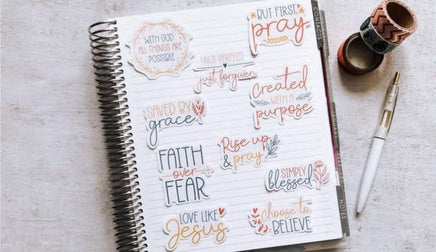 WITH GOD
ALL THINGS ARE
POSSIBLE
BUT FIRST
pray
NOT PERFECT
just forgiven
Created
WITH A
purpose
SAVED BY
grace
Rise up
& pray
FAITH
over
FEAR
SIMPLY
blessed
LOVE LIKE
Jesus
choose to
BELIEVE
NOTES